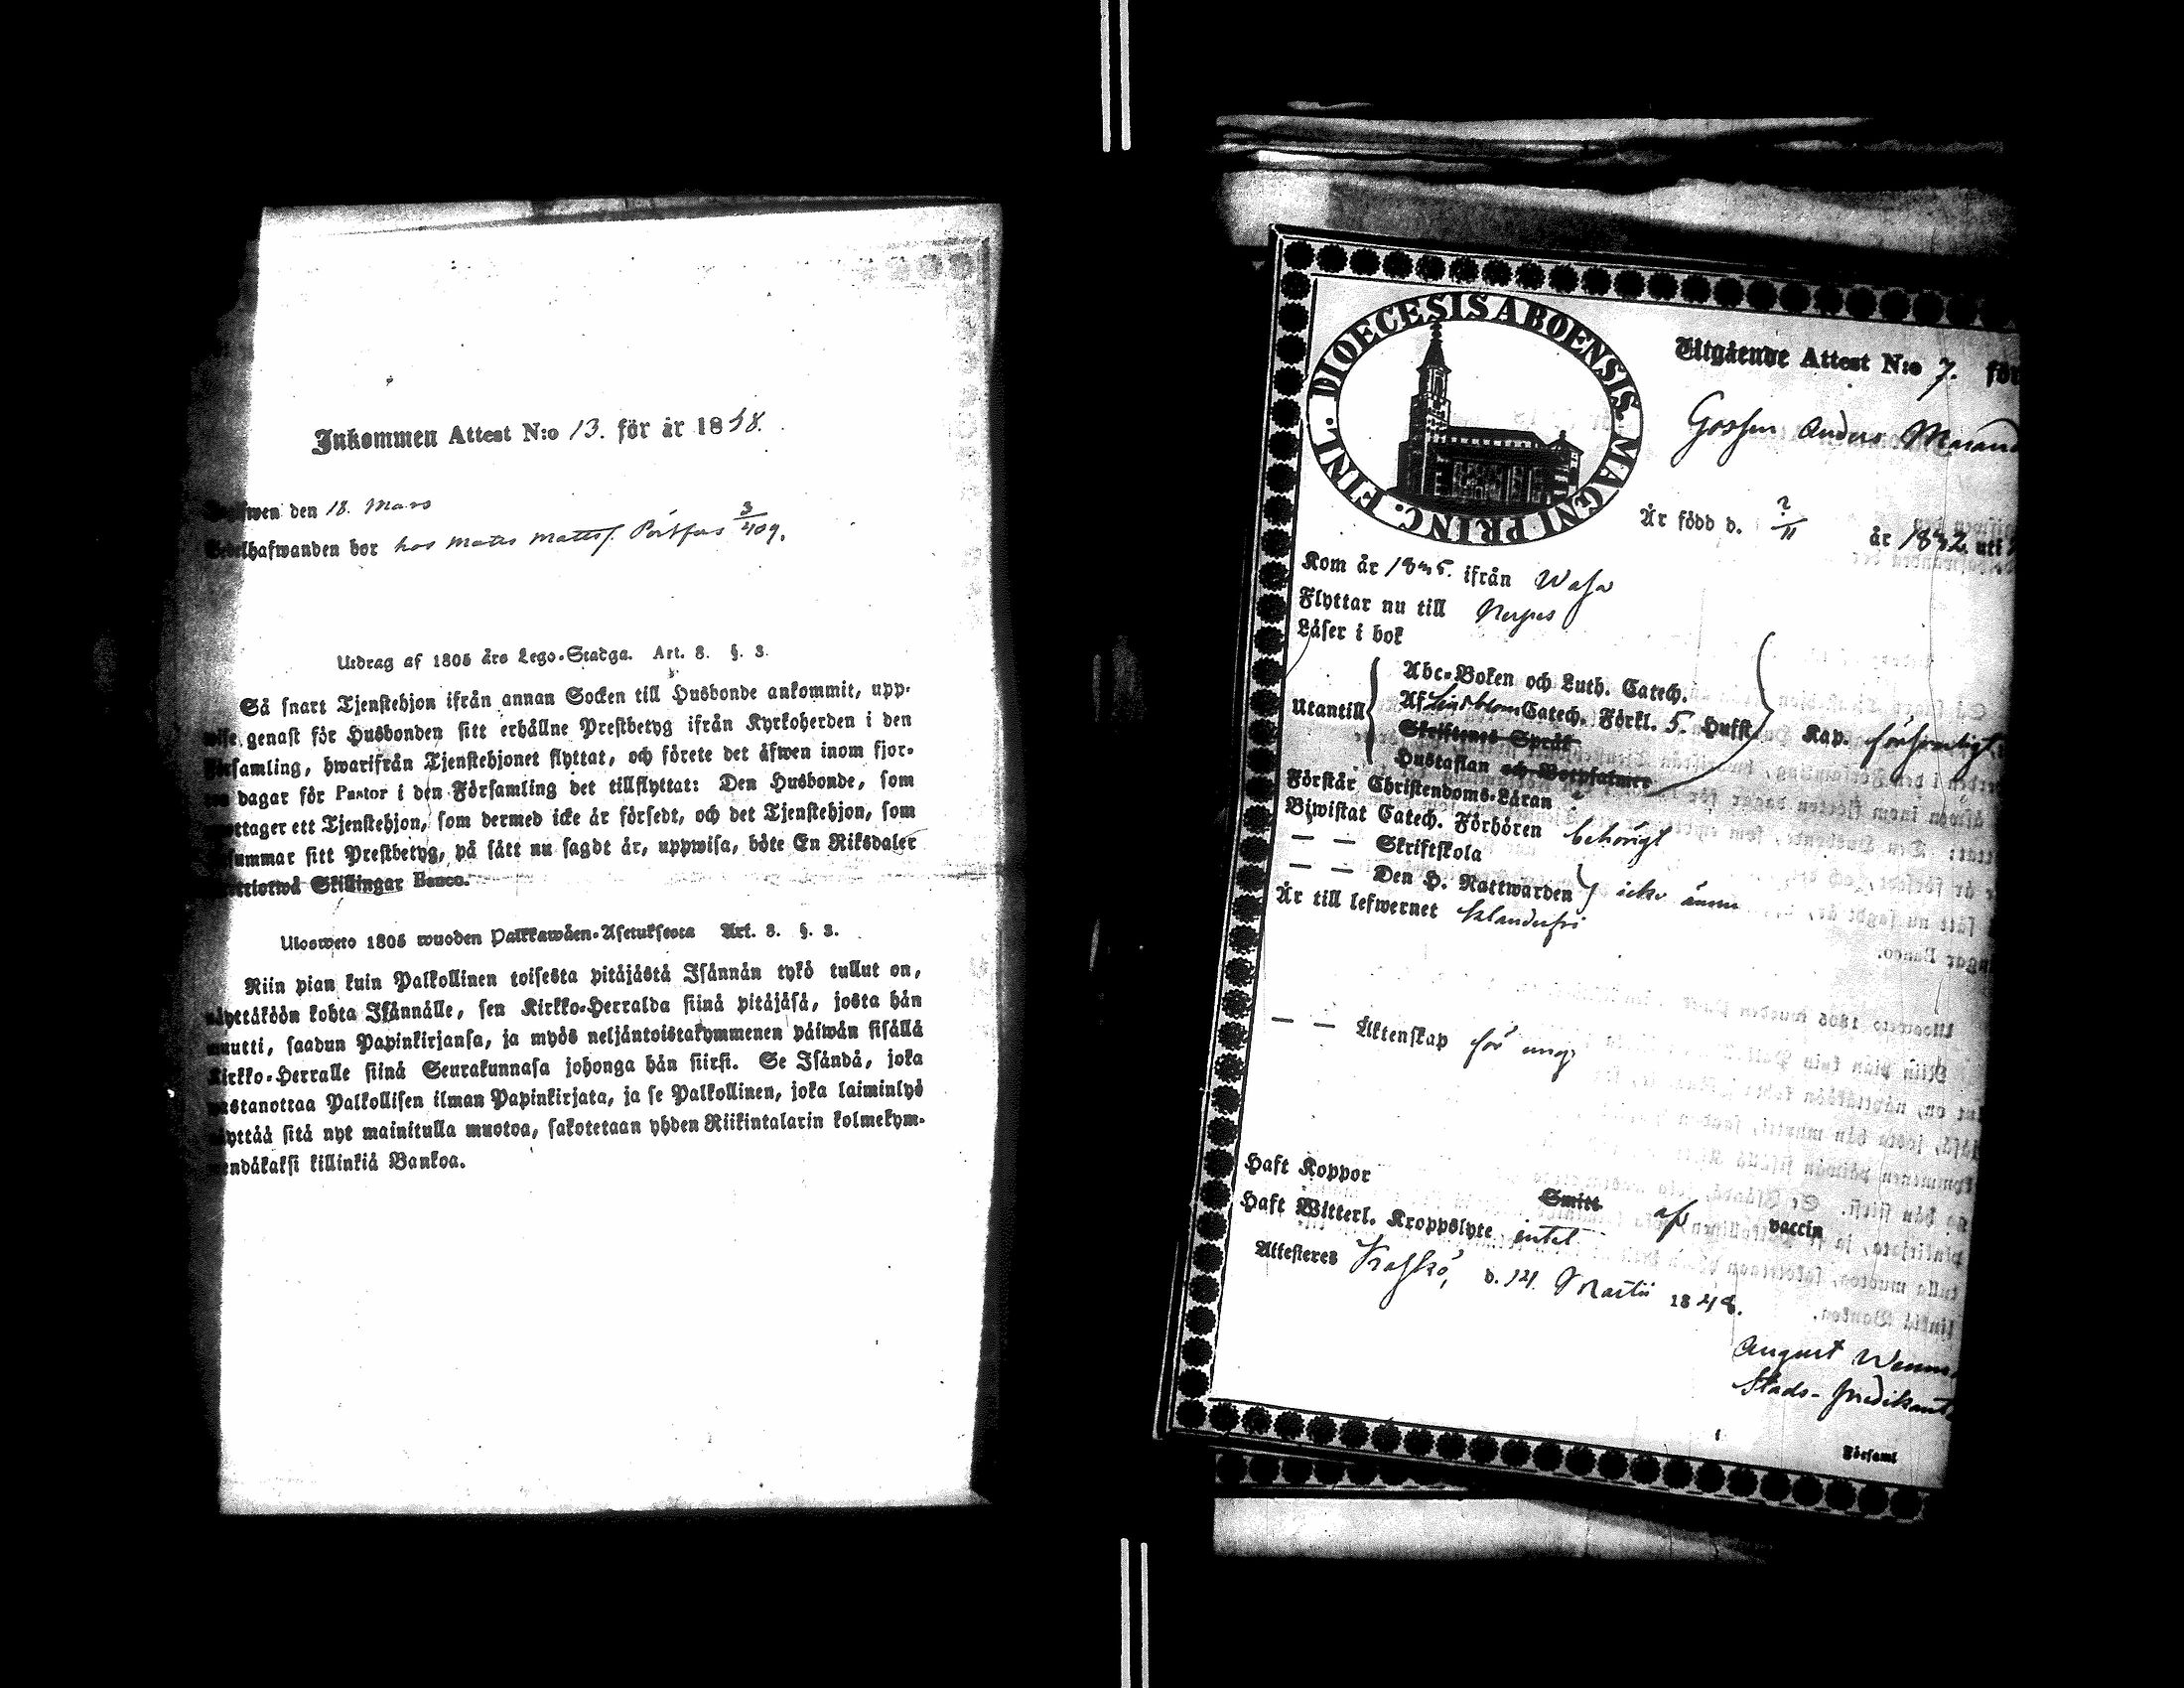 Inkommen Attest N:o 13. för år 1848.
den 18. Mars
bor hos Matts Mattss. 3/409.
Utdrag af 1805 års Lego-Stadga. Art. 8. §. 3.
Så snart Tjenstehjon ifrån annan Socken till Husbonde ankommit, upp-
wise genast för Husbonden sitt erhållne Prestbetyg ifrån Kyrkoherden i den
Församling, hwarifrån Tjenstehjonet flyttat, och förete det äfwen inom fjor-
ton dagar för Pastor i den Församling det tillflyttat: Den Husbonde, som
emottager ett Tjenstehjon, som dermed icke är försedt, och det Tjenstehjon, som
försummar sitt Prestbetyg, på sätt nu sagdt är, uppwisa, böte En Riksdaler
trettiotwå Skillingar Banco.
Ulosweto 1805 wuoden Palkkawäen-Asetuksesta Art. 8. §. 3.
Niin pian kuin Palkollinen toisesta pitäjästä Isännän tykö tullut on,
näyttäköön kohta Isännälle, sen Kirkko-Herralda siinä pitäjäsä, josta hän
muutti, saadun Papinkirjansa, ja myös neljäntoistakymmenen päiwän sisällä
Kirkko-Herralle siinä Seurakunnasa johonga hän siirsi. Se Isändä, joka
wastanottaa Palkollisen ilman Papinkirjata, ja se Palkollinen, joka laiminlyö
näyttää sitä nyt mainitulla muotoa, sakotetaan yhden Riikintalarin kolmekym-
mendäkaksi killinkiä Bankoa.
DIOECESIS ABOENSIS. MAGNI PRINC. FINL.
Utgående Attest N:o 7. för
Gossen Anders
Är född d. ?/11 år 1832 uti
Kom år 1835. ifrån Wasa
Flyttar nu till Nerpes
Läser i bok
Utantill
Abc-Boken och Luth. Catech.
Af Lindblom Catech. Förkl. 5. Hufst. Kap. försvarligt.
Skriftenes Språk
Hustaflan och Botpsalmer
Förstår Christendoms-Läran
Biwistat Catech. Förhören behörigt
— — Skriftskola
— — Den H. Nattwarden icke ännu
Är till lefwernet klanderfri
— — Äktenskap för ung
Haft Koppor Smitt. af vaccin
Haft Witterl. Kroppslyte intet
Attesteres Kaskö, d. 14. Martii 1848.
August
Stads-predikant
Församl